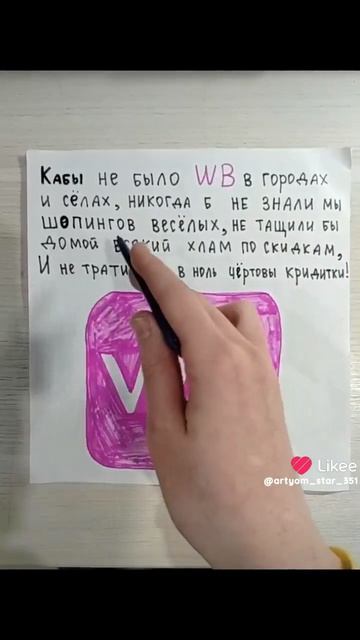 Кабы не было WB в городах
и сёлах, никогда б не знали мы
шопингов весёлых, не тащили бы
домой хлам по скидкам,
И не в ноль чёртовы кридитки!
W
Likee
@artyom_star_351